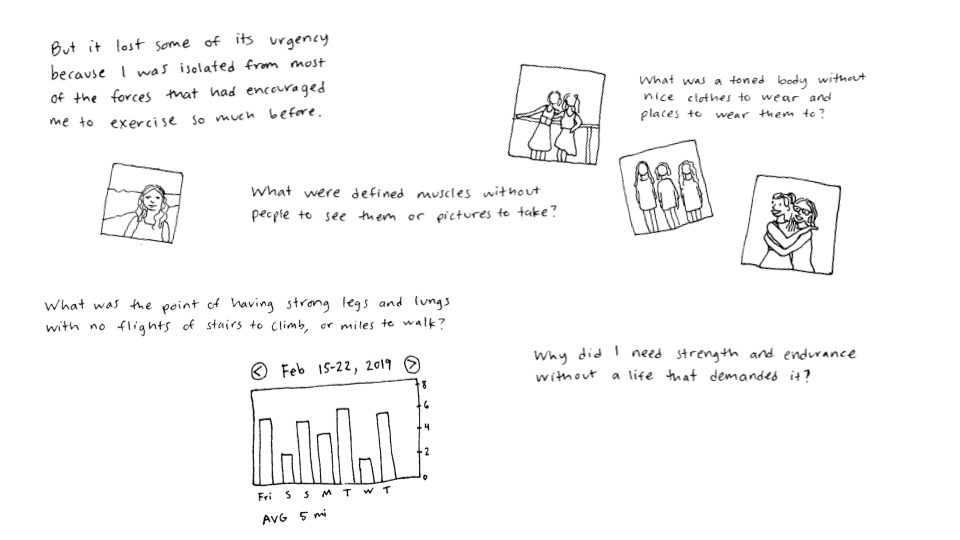 But it lost some of its urgency
because I was isolated from most
of the forces that had encouraged
me to exercise so much before.
What was a toned body without
nice clothes to wear and
places to wear them to?
What were defined muscles without
people to see them or pictures to take?
What was the point of having strong legs and lungs
with no flights of stairs to climb, or miles to walk?
< Feb 15-22, 2019 >
8
6
4
2
0
Fri S S M T W T
AVG 5 mi
Why did I need strength and endurance
without a life that demanded it?